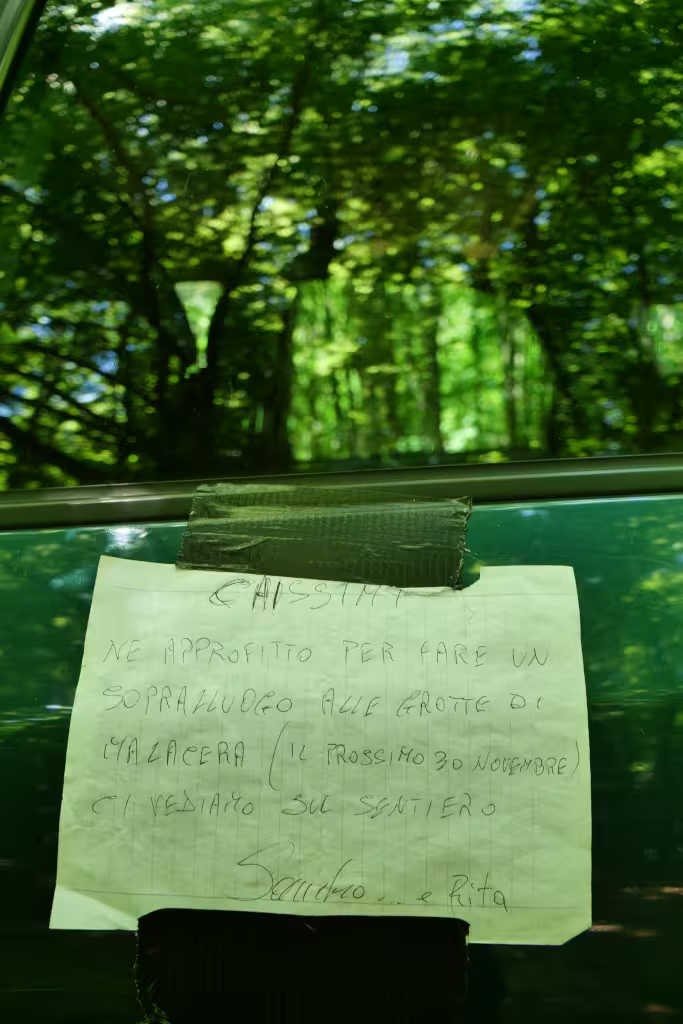 CARISSIMI
NE APPROFITTO PER FARE UN
SOPRALLUOGO ALLE GROTTE DI
MALACERA (IL PROSSIMO 30 NOVEMBRE)
CI VEDIAMO SUL SENTIERO
Sandro... e Rita